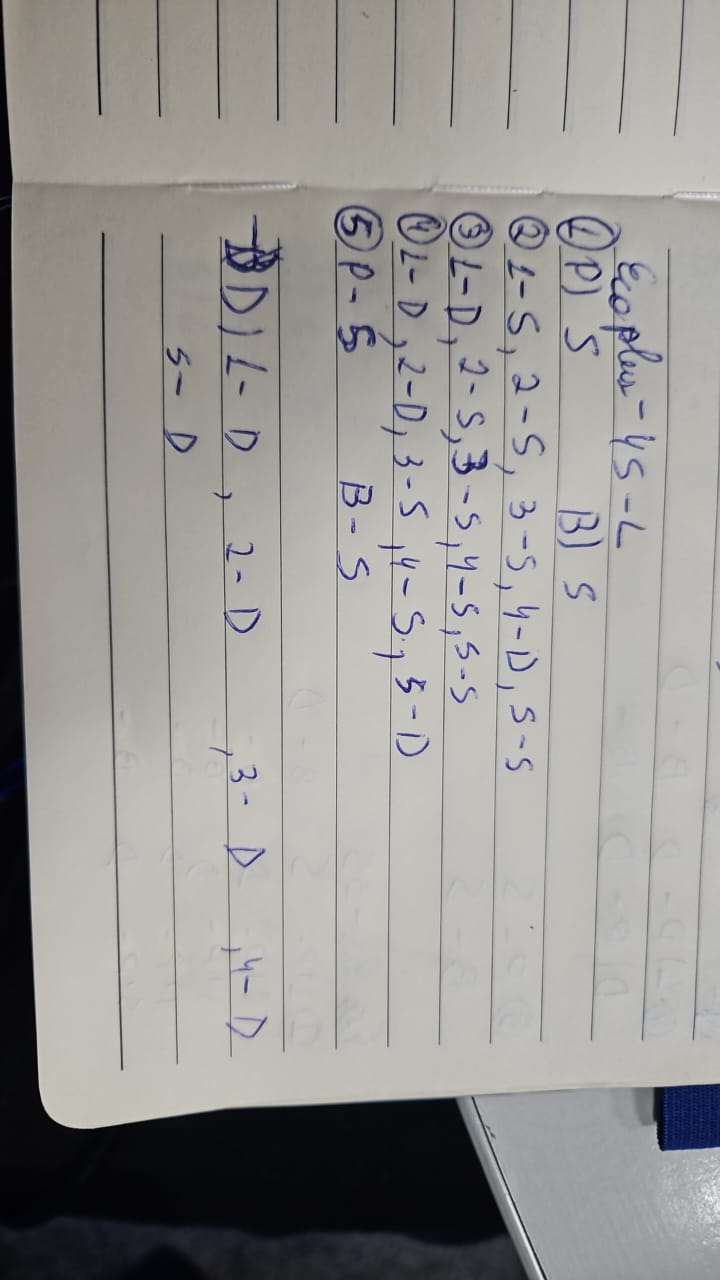 Ecoplus - 4S - L
① P) S B) S
② L-S, 2-S, 3-S, 4-D, 5-S
③ L-D, 2-S, 3-S, 4-S, 5-S
④ L-D, 2-D, 3-S, 4-S, 5-D
⑤ P-S B-S
D) L-D, 2-D, 3-D, 4-D
5-D